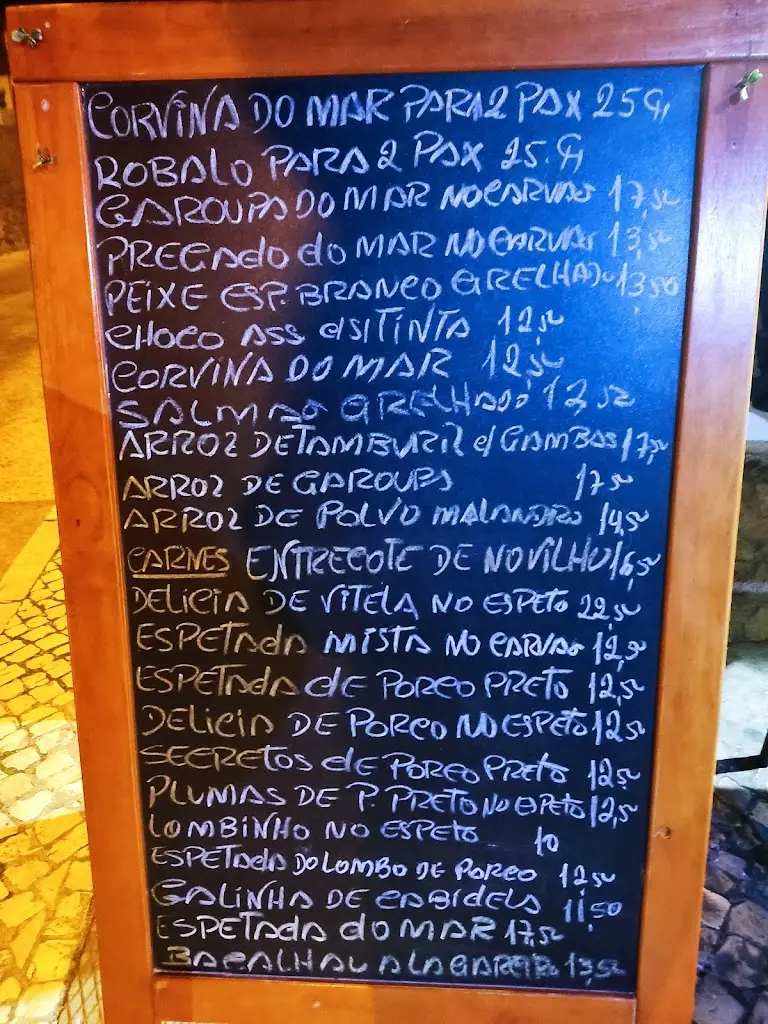 CORVINA DO MAR PARA 2 PAX 25€,
ROBALO PARA 2 PAX 25.€
GAROUPA DO MAR NO CARVAO 17,50
PREGADO do MAR NO CARVAO 13,50
PEIXE ESP. BRANCO GRELHADO 13,50
CHOCO ASS c/SITINTA 12,50
CORVINA DO MAR 12,50
SALMAO GRELHADO 12,50
ARROZ DE TAMBURIL c/ GAMBAS 17,50
ARROZ DE GAROUPA 17,50
ARROZ DE POLVO MALANDRO 14,50
CARNES ENTRECOTE DE NOVILHO 16,50
DELICIA DE VITELA NO ESPETO 22,50
ESPETAdA MISTA NO CARVAO 12,50
ESPETAdA dE PORCO PRETO 12,50
DELICIA DE PORCO NO ESPETO 12,50
SECREtOS dE PORCO PRETO 12,50
PLUMAS DE P. PRETO NO ESPETO 12,50
LOMBINHO NO ESPETO 10
ESPETAdA DO LOMBO DE PORCO 12,50
GALINHA DE CABIDELA 11,50
ESPETADA dO MAR 17,50
BACALHAU A LAGAREIRO 13,50